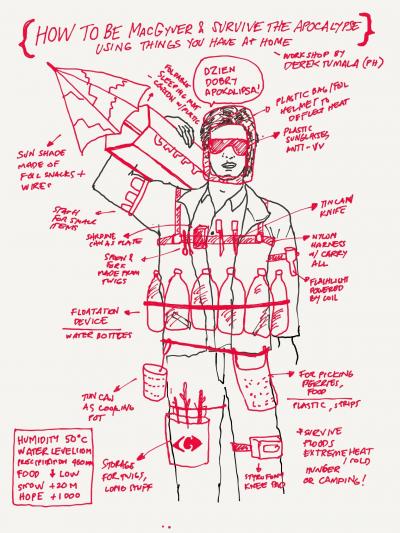 HOW TO BE MACGYVER & SURVIVE THE APOCALYPSE
USING THINGS YOU HAVE AT HOME
- WORKSHOP BY
DEREK TUMALA (PH)
FOLDABLE
SLEEPING MAT
DZIEN
DOBRY
APOKALIPSA!
PLASTIC BAG/FOIL
HELMET TO
DEFLECT HEAT
PLASTIC
SUNGLASSES,
ANTI-UV
SUN SHADE
MADE OF
FOIL SNACKS +
WIRES
FOR SMALL
ITEMS
SARDINE
CAN AS PLATE
SPOON &
FORK
MADE FROM
TWIGS
TIN CAN
KNIFE
NYLON
HARNESS
W/ CARRY
ALL
FLASHLIGHT
POWERED
BY COIL
FLOATATION
DEVICE
WATER BOTTLES
TIN CAN
AS COOKING
POT
FOR PICKING
BERRIES,
FOOD
PLASTIC, STRIPS
HUMIDITY 50°C
WATER LEVEL 10M
PRECIPITATION
FOOD ↓ LOW
SNOW + 20 M
HOPE + 1000
STORAGE
FOR TWIGS,
LONG STUFF
STYROFOAM
KNEE PAD
* SURVIVE
FLOODS
EXTREME HEAT
/ COLD
HUNGER
OR CAMPING!